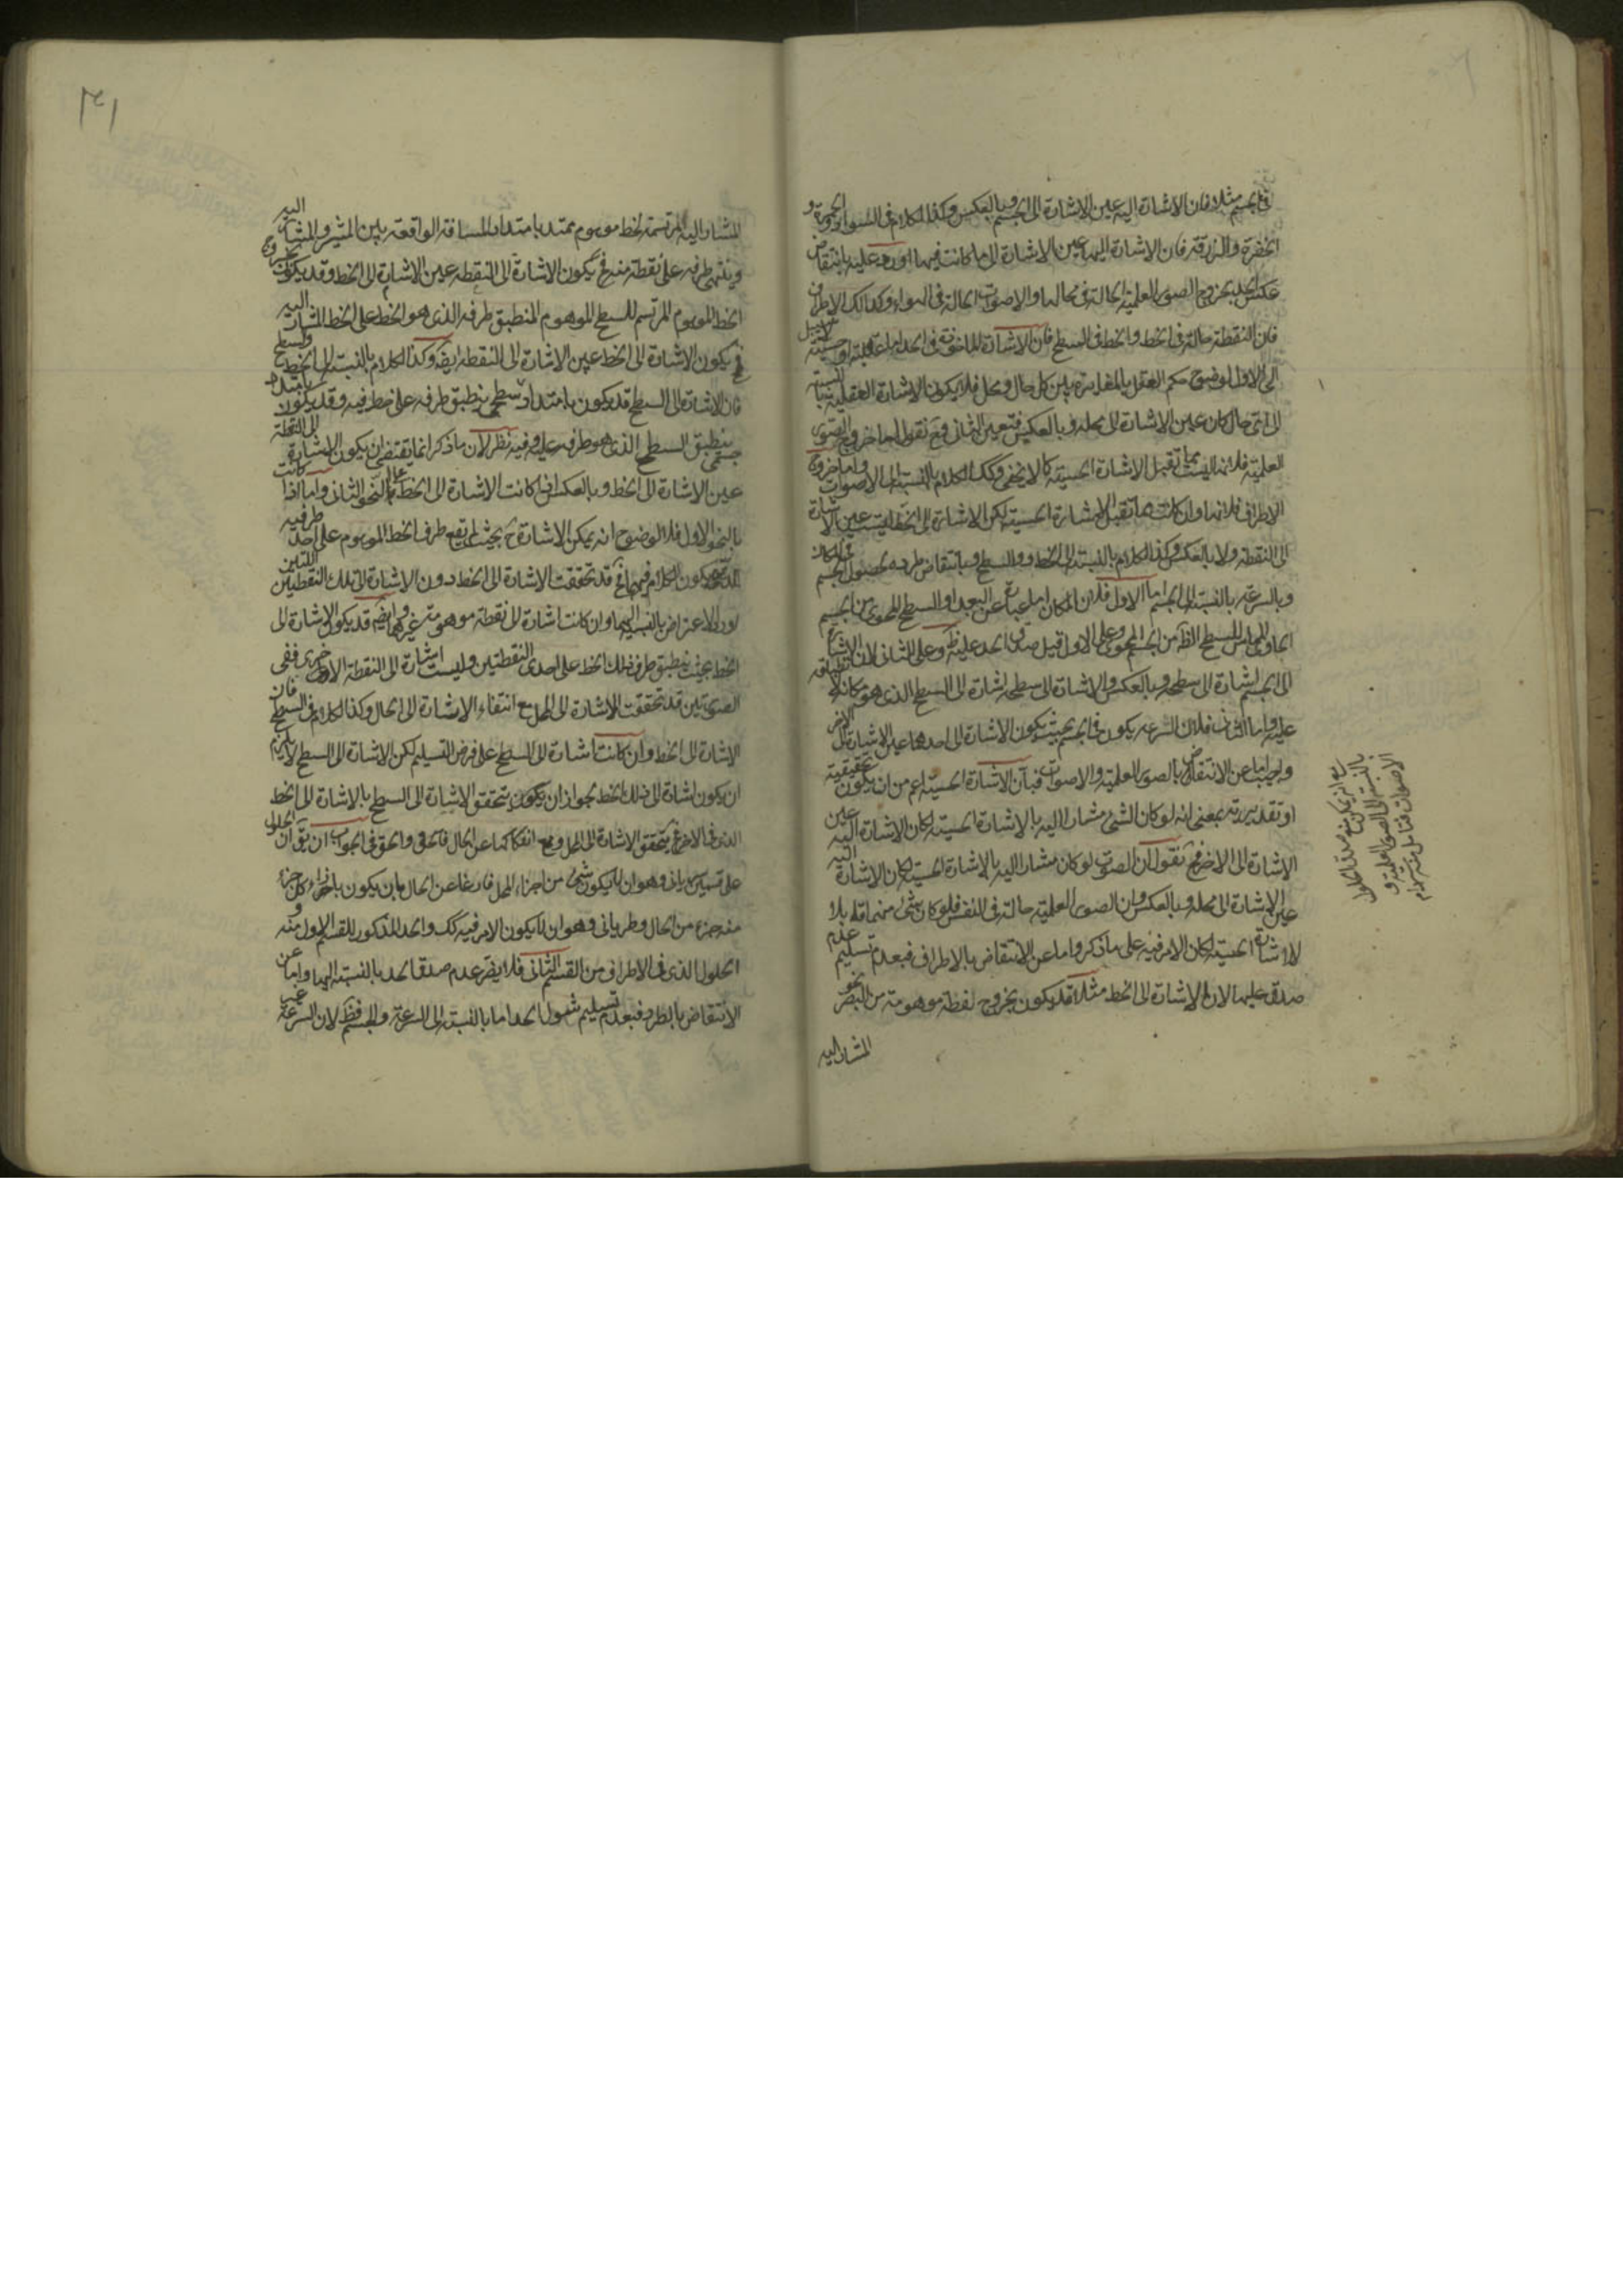 في الجسم مثلا فان الاشارة اليه عين الاشارة الى الجسم وبالعكس وكذا الكلام في السواد والحمرة و
الخضرة والزرقة فان الاشارة اليها عين الاشارة الى ما كانت فيها اورد عليه بانتقاض
عكس الحد بخروج الصور العلمية الحالة في محالها والاصوات الحالة في الهواء وكذلك الاطراف
فان النقطة حالة في الخط والخط في السطح فان الاشارة الماخوذة في الحد اما عقلية او حسية لا سبيل
الى الاول لوضوح حكم العقل بالمغايرة بين كل حال ومحل فلا يكون الاشارة العقلية بالنسبة
الى اي حال كان عين الاشارة الى محله وبالعكس فتعين الثاني وح نقول اما خروج الصور
العلمية فلانها ليست مما تقبل الاشارة الحسية كما لا يخفى وكك الكلام بالنسبة الى الاصوات واما خروج
الاطراف فلانها وان كانت مما تقبل الاشارة الحسية لكن الاشارة الى الخط ليست عين الاشارة
الى النقطة ولا بالعكس وكذا الكلام بالنسبة الى الخط والسطح وبانتقاض طرده بحصول الجسم في المكان
وبالسرعة بالنسبة الى الجسم اما الاول فلان المكان اما عبارة عن البعد او السطح المحوى من الجسم
الحاوي المماس للسطح الظاهر من الجسم المحوى وعلى الاول قيل صدق الحد عليه ظ وعلى الثاني لان الاشارة
الى الجسم اشارة الى سطحه وبالعكس والاشارة الى سطحه اشارة الى السطح الذي هو مكانه لانطباقه
عليه واما الثاني فلان السرعة يكون في الجسم بحيث يكون الاشارة الى احدهما عين الاشارة الى الاخر
واجيب اما عن الانتقاض بالصور العلمية والاصوات فبان الاشارة الحسية اعم من ان يكون حقيقية
او تقديرية بمعنى انه لو كان الشئ مشارا اليه بالاشارة الحسية لكان الاشارة اليه عين
الاشارة الى الاخر فح نقول ان الصوت لو كان مشارا اليه بالاشارة الحسية لكان الاشارة اليه
عين الاشارة الى محله وبالعكس وان الصور العلمية حالة في النفس فلو كان شئ منهما قابلا
للاشارة الحسية لكان الامر فيه على ما ذكر واما عن الانتقاض بالاطراف فبعدم تسليم عدم
صدق عليها لان الاشارة الى الخط مثلا قد يكون بخروج نقطة موهومة من البصر نحو
المشار اليه
بالنسبة الى الصور العلمية و
الاصوات فتامل منه
المشار اليه المرتسمة لخط موهوم ممتد بامتداد المسافة الواقعة بين المشير والمشار اليه
وينتهي طرفه على نقطة منه فح يكون الاشارة الى النقطة عين الاشارة الى الخط وقد يكون بخروج
الخط الموهوم المرتسم للسطح الموهوم المنطبق طرفه الذي هو الخط على الخط المشار اليه
فح يكون الاشارة الى الخط عين الاشارة الى النقطة ايضا وكذا الكلام بالنسبة الى الخط والسطح
فان الاشارة الى السطح قد يكون بامتداد سطحي ينطبق طرفه على خط فيه وقد يكون بامتداد
جسمي ينطبق السطح الذي هو طرفه عليه وفيه نظر لان ما ذكر انما يقتضي ان يكون الاشارة الى النقطة
عين الاشارة الى الخط وبالعكس اذا كانت الاشارة الى الخط على النحو الثاني واما اذا كانت
بالنحو الاول فلا لوضوح انه يمكن الاشارة ح بحيث لم يقع طرف الخط الموهوم على احد طرفيه
يكون الكلام فيهما فح قد تحققت الاشارة الى الخط دون الاشارة الى تلك النقطتين اللتين
اورد الاعتراض بالنسبة اليهما وان كانت اشارة الى نقطة موهومة غيرهما وايضا قد يكون الاشارة الى
الخط بحيث ينطبق طرف ذلك الخط على احدى النقطتين وليست اشارة الى النقطة الاخرى ففي
الصورتين قد تحققت الاشارة الى المحل مع انتفاء الاشارة الى الحال وكذا الكلام في السطح فان
الاشارة الى الخط وان كانت اشارة الى السطح على فرض التسليم لكن الاشارة الى السطح لا يلزم
ان يكون اشارة الى ذلك الخط لجواز ان يكون يتحقق الاشارة الى السطح بالاشارة الى الخط
الذي في الاخر فح يتحقق الاشارة الى المحل مع انفكاكها عن الحال والحق في الجواب ان يق ان الحلول
على قسمين سرياني وهو ان لا يكون شئ من اجزاء المحل فارغا عن الحال بان يكون بازاء كل جزء
منه جزء من الحال وطرياني وهو ان لا يكون الامر فيه كك والحد المذكور للقسم الاول منه و
الحلول الذي في الاطراف من القسم الثاني فلا يضر عدم صدق الحد بالنسبة اليها واما عن
الانتقاض بالطرد فبعدم تسليم شمول الحد اما بالنسبة الى السرعة والجسم فظ لان السرعة